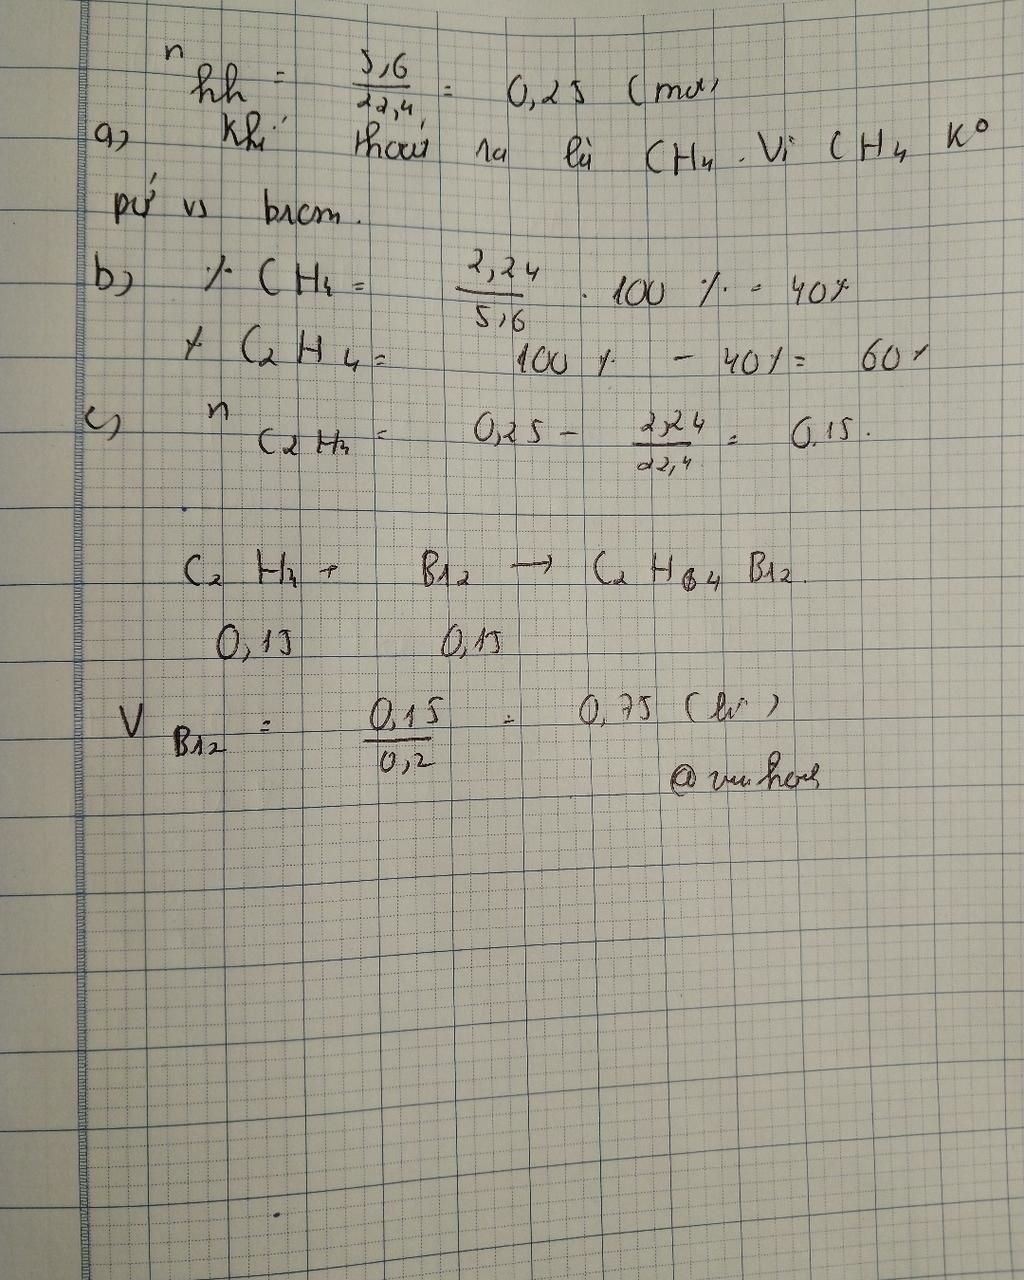 n hh = 5,6 / 22,4 = 0,25 (mol)
a) Khí thoát ra là CH4. Vì CH4 Ko
pứ vs brom.
b) % CH4 = 2,24 / 5,6 . 100 % = 40%
% C2H4 = 100 % - 40% = 60%
c) n C2H4 = 0,25 - 2,24 / 22,4 = 0,15.
C2H4 + Br2 → C2H4Br2.
0,15 0,15
V Br2 = 0,15 / 0,2 = 0,75 (lít)